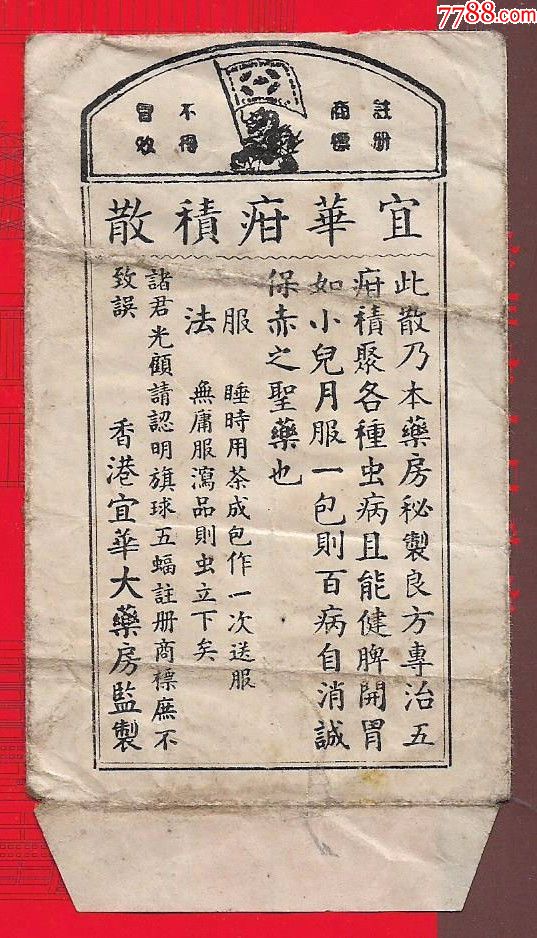 7788.com
註冊
商標
不得
冒效
宜華疳積散
此散乃本藥房秘製良方專治五
疳積聚各種虫病且能健脾開胃
如小兒月服一包則百病自消誠
保赤之聖藥也
服法
睡時用茶成包作一次送服
無庸服瀉品則虫立下矣
諸君光顧請認明旗球五蝠註册商標庶不
致誤
香港宜華大藥房監製